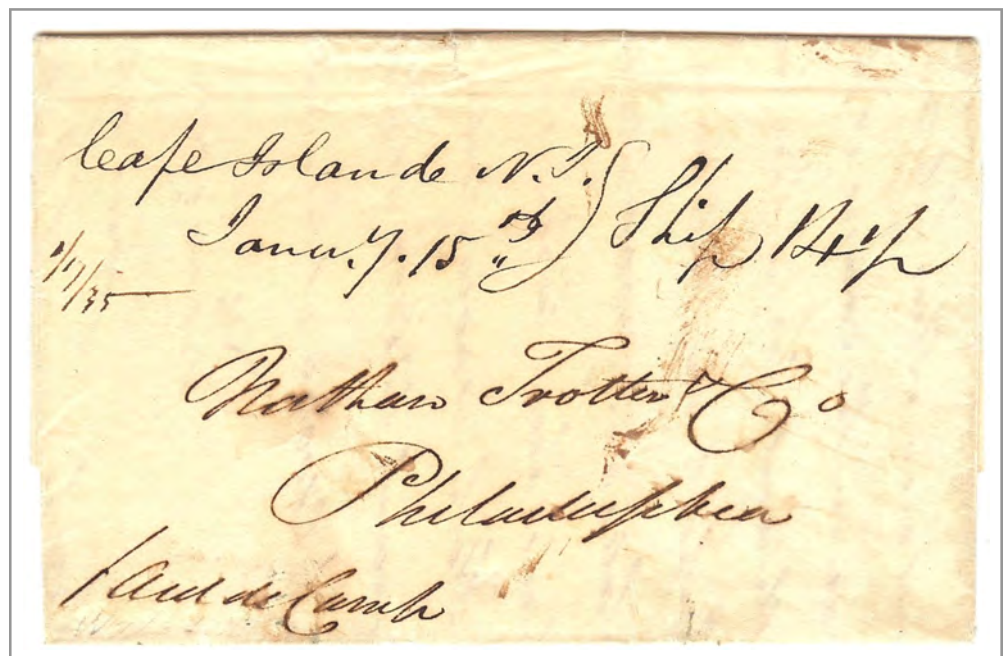 Cape Islande N.J.
Janu.y. 15th Ship 14½
1/17/35
Nathan Trotter & Co
Philadelphia
de Camp